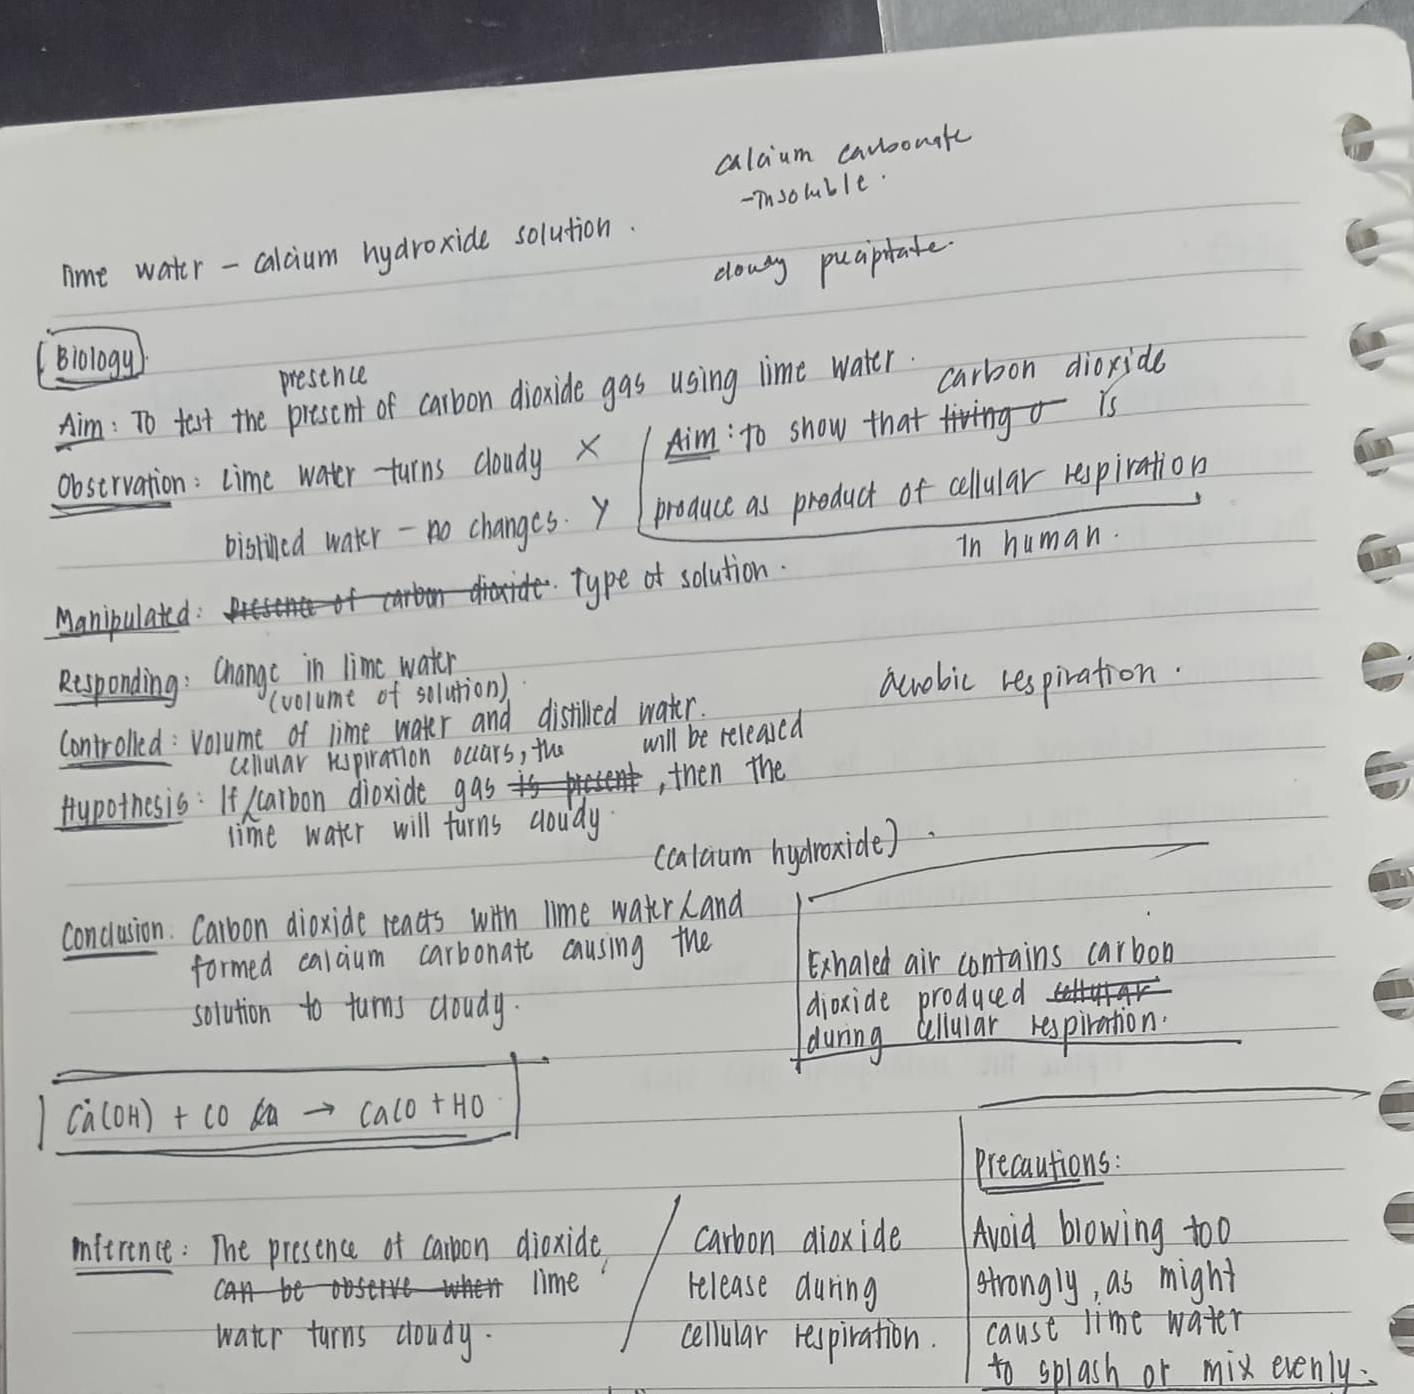 calcium carbonate
-insoluble.
lime water - calcium hydroxide solution.
cloudy precipitate.
Biology
presence
Aim: To test the present of carbon dioxide gas using lime water.
carbon dioxide
Aim: to show that living o is
produce as product of cellular respiration
in human.
Observation: Lime water - turns cloudy X
Distilled water - no changes. Y
Manipulated: Presence of carbon dioxide. Type of solution.
Responding: Change in lime water
(volume of solution)
aerobic respiration.
Controlled: Volume of lime water and distilled water.
cellular respiration occurs, the will be released
Hypothesis: If carbon dioxide gas is present, then the
lime water will turns cloudy.
(calcium hydroxide).
Conclusion: Carbon dioxide reacts with lime water and
formed calcium carbonate causing the
solution to turns cloudy.
Exhaled air contains carbon
dioxide produced cellular
during cellular respiration.
Ca(OH) + CO → CaCO + HO
Inference: The presence of carbon dioxide,
can be observe when lime
water turns cloudy.
Carbon dioxide
release during
cellular respiration.
Precautions:
Avoid blowing too
strongly, as might
cause lime water
to splash or mix evenly.